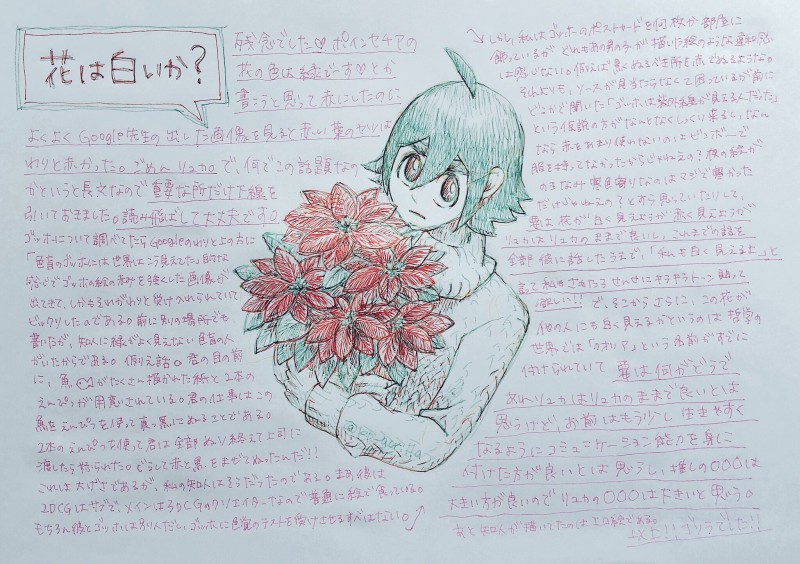 花は白いか?
残念でした♡ポインセチアの
花の色は緑です♡とか
書こうと思って赤にしたのに
よくよくGoogle先生の出した画像を見ると赤い葉のヤツは
わりと赤かった。ごめんリュカ。で、何でこの話題なの
かというと長文なので重要な所だけ下線を
引いておきました。読み飛ばして大丈夫です。
ゴッホについて調べてたらGoogleのわりと上の方に
「色盲のゴッホには世界はこう見えた」的な
内容でゴッホの絵の赤みを強くした画像が
出てきて、しかもそれがわりと受け入れられていて
ビックリしたのである。前に別の場所でも
書いたが、知人に緑がよく見えない色盲の人
がいたからである。仮りえ話。君の目の前
に、魚がたくさん描かれた紙と2本の
えんぴつが用意されている。君の仕事はこの
魚をえんぴつを使って真っ黒にぬることである。
2本のえんぴつを使って君は全部ぬり終えて上司に
渡したら怒られた。どうして赤と黒をまぜてぬったんだ!!
これは大げさであるが、私の知人はそうだったのである。まあ彼は
2DCGはサブで、メインは3DCGのクリエイターなので普通に絵で食っている。
もちろん彼とゴッホは別人だし、ゴッホに色覚のテストを受けさせる術はない。
しかし、私はゴッホのポストカードを何枚か部屋に
飾っているが どれもあの男の子が描いた絵のような違和感
は感じない。例えば黒くぬるべき所を赤でぬるような。
それよりも、ソースが見当たらなくて困っているが前に
どこかで聞いた「ゴッホは紫外線が見える人だった」
という仮説の方がなんとなくしっくり来るし、なん
なら赤をあまり使わないのはビンボーで
服を持ってなかったからじゃねえの?夜の絵が
のきなみ寒色寄りなのはマジで寒かった
だけじゃねえの?とすら思っていたりして、
要は花が白く見えようが赤く見えようが
リュカはリュカのままで良いし、これまでの話を
全部彼に話したうえで、「私も白く見えるよ」と
言て私きまたろせんせにキラキラトーン貼って
欲しい!!で、そこからさらに、この花が
他の人にも白く見えるかというのは哲学の
世界では「クオリア」という名前がすでに
付けられていて 要は何がどうで
あれリュカはリュカのままで良いとは
思うけど、お前はもう少しはきやすく
なるようにコミュニケーション能力を身に
付けた方が良いとは思うし、推しの〇〇〇は
大きい方が良いのでリュカの〇〇〇は大きいと思う。
あと知人が描いてたのはエロ絵である。
以上!!ゴリラでした!!